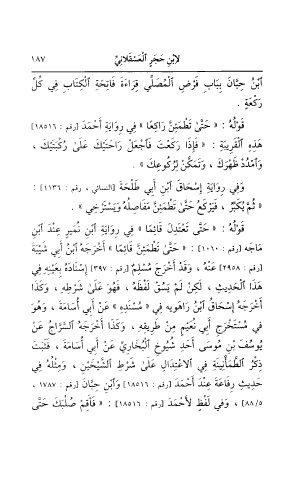 لِابْنِ حَجَرٍ ٱلْعَسْقَلَانِيِّ
١٨٧
ٱبْنُ حِبَّانَ بِبَابِ فَرْضِ ٱلْمُصَلِّي قِرَاءَةَ فَاتِحَةِ ٱلْكِتَابِ فِي كُلِّ
رَكْعَةٍ .
قَوْلُهُ : « حَتَّىٰ تَطْمَئِنَّ رَاكِعًا » فِي رِوَايَةِ أَحْمَدَ [رقم : ١٨٥١٦]
هَذِهِ ٱلْقَرِيبَةِ : « فَإِذَا رَكَعْتَ فَٱجْعَلْ رَاحَتَيْكَ عَلَىٰ رُكْبَتَيْكَ ،
وَٱمْدُدْ ظَهْرَكَ ، وَتَمَكَّنْ لِرُكُوعِكَ » .
وَفِي رِوَايَةِ إِسْحَاقَ ٱبْنِ أَبِي طَلْحَةَ [النسائي ، رقم : ١١٣٦] :
« ثُمَّ يُكَبِّرُ ، فَيَرْكَعُ حَتَّىٰ تَطْمَئِنَّ مَفَاصِلُهُ وَيَسْتَرْخِيَ » .
قَوْلُهُ : « حَتَّىٰ تَعْتَدِلَ قَائِمًا » فِي رِوَايَةِ ٱبْنِ نُمَيْرٍ عِنْدَ ٱبْنِ
مَاجَه [رقم : ١٠٦٠] : « حَتَّىٰ تَطْمَئِنَّ قَائِمًا » أَخْرَجَهُ ٱبْنُ أَبِي شَيْبَةَ
[رقم : ٢٩٥٨] عَنْهُ ، وَقَدْ أَخْرَجَ مُسْلِمٌ [رقم : ٣٩٧] إِسْنَادَهُ بِعَيْنِهِ فِي
هَذَا ٱلْحَدِيثِ ، لَكِنْ لَمْ يَسُقْ لَفْظَهُ ، فَهُوَ عَلَىٰ شَرْطِهِ ، وَكَذَا
أَخْرَجَهُ إِسْحَاقُ ٱبْنُ رَاهَوِيهِ فِي « مُسْنَدِهِ » عَنْ أَبِي أُسَامَةَ ، وَهُوَ
فِي مُسْتَخْرَجِ أَبِي نُعَيْمٍ مِنْ طَرِيقِهِ ، وَكَذَا أَخْرَجَهُ ٱلسَّرَّاجُ عَنْ
يُوسُفَ بْنِ مُوسَىٰ أَحَدِ شُيُوخِ ٱلْبُخَارِيِّ عَنْ أَبِي أُسَامَةَ ، فَثَبَتَ
ذِكْرُ ٱلطُّمَأْنِينَةِ فِي ٱلِاعْتِدَالِ عَلَىٰ شَرْطِ ٱلشَّيْخَيْنِ ، وَمِثْلُهُ فِي
حَدِيثِ رِفَاعَةَ عِنْدَ أَحْمَدَ [رقم : ١٨٥١٦] وَٱبْنِ حِبَّانَ [رقم : ١٧٨٧ ،
٨٨/٥] ، وَفِي لَفْظٍ لِأَحْمَدَ [رقم : ١٨٥١٦] : « فَأَقِمْ صُلْبَكَ حَتَّىٰ